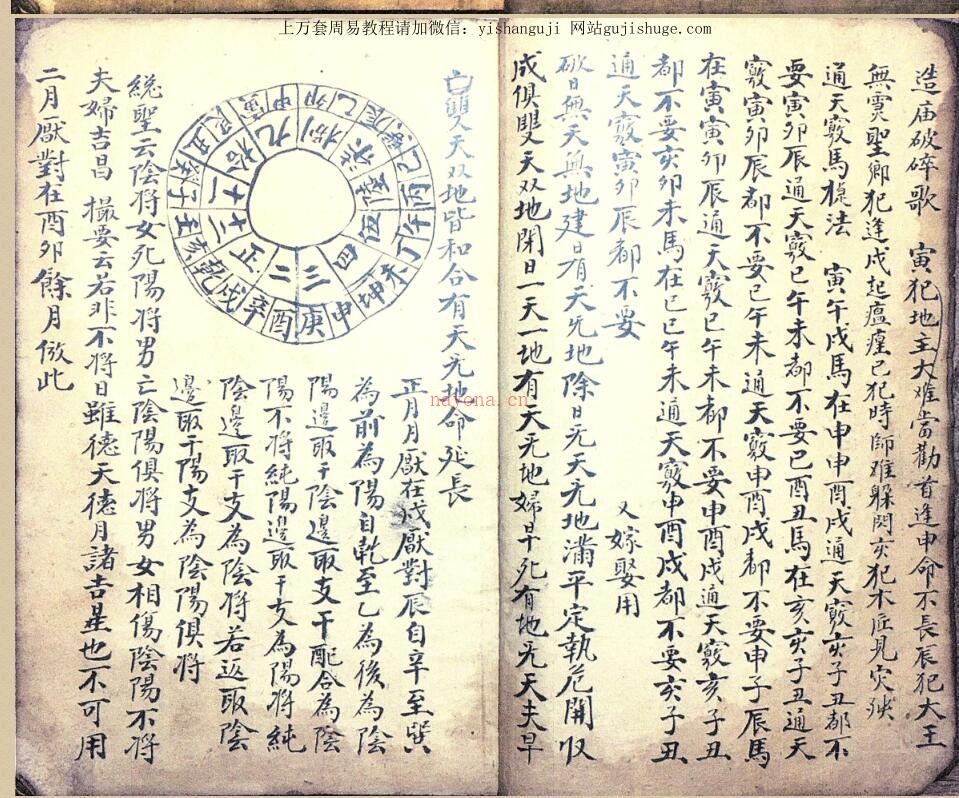 上万套周易教程请加微信：yishanguji 网站gujishuge.com
造庙破碎歌 寅犯地主大难當勸首逢申命不長辰犯大王
無灵聖卿犯逢戌起瘟瘽己犯時師难躲閃亥犯木匠見灾殃
通天竅馬提法 寅午戌馬在申申酉戌通天竅亥子丑都不
要寅卯辰通天竅巳午未都不要巳酉丑馬在亥亥子丑通天
竅寅卯辰都不要巳午未通天竅申酉戌都不要申子辰馬
在寅寅卯辰通天竅巳午未都不要申酉戌通天竅亥子丑
都不要亥卯未馬在巳巳午未通天竅申酉戌都不要亥子丑
通天竅寅卯辰都不要 又嫁娶用
破日無天無地建日有天旡地除日旡天旡地滿平定執危開收
成俱雙天双地閉日一天一地有天旡地婦早死有地旡天夫早
亡雙天双地皆和合有天旡地命延長
正月月厭在戌厭對辰自辛至巽
為前為陽自乾至乙為後為陰
陽邊取干陰邊取支干配合為陰
陽不將純陽邊取干支為陽將純
陰邊取干支為陰將若返取陰
邊取干陽支為陰陽俱將
正 二 三 四 五 六 七 八 九 十 十一 十二
乾 戌 辛 酉 庚 申 坤 未 丁 午 丙 巳
總聖云陰將女死陽將男亡陰陽俱將男女相傷陰陽不將
夫婦吉昌 撮要云若非不將日雖德天德月諸吉星也不可用
二月厭對在酉卯餘月倣此
nayona.cn